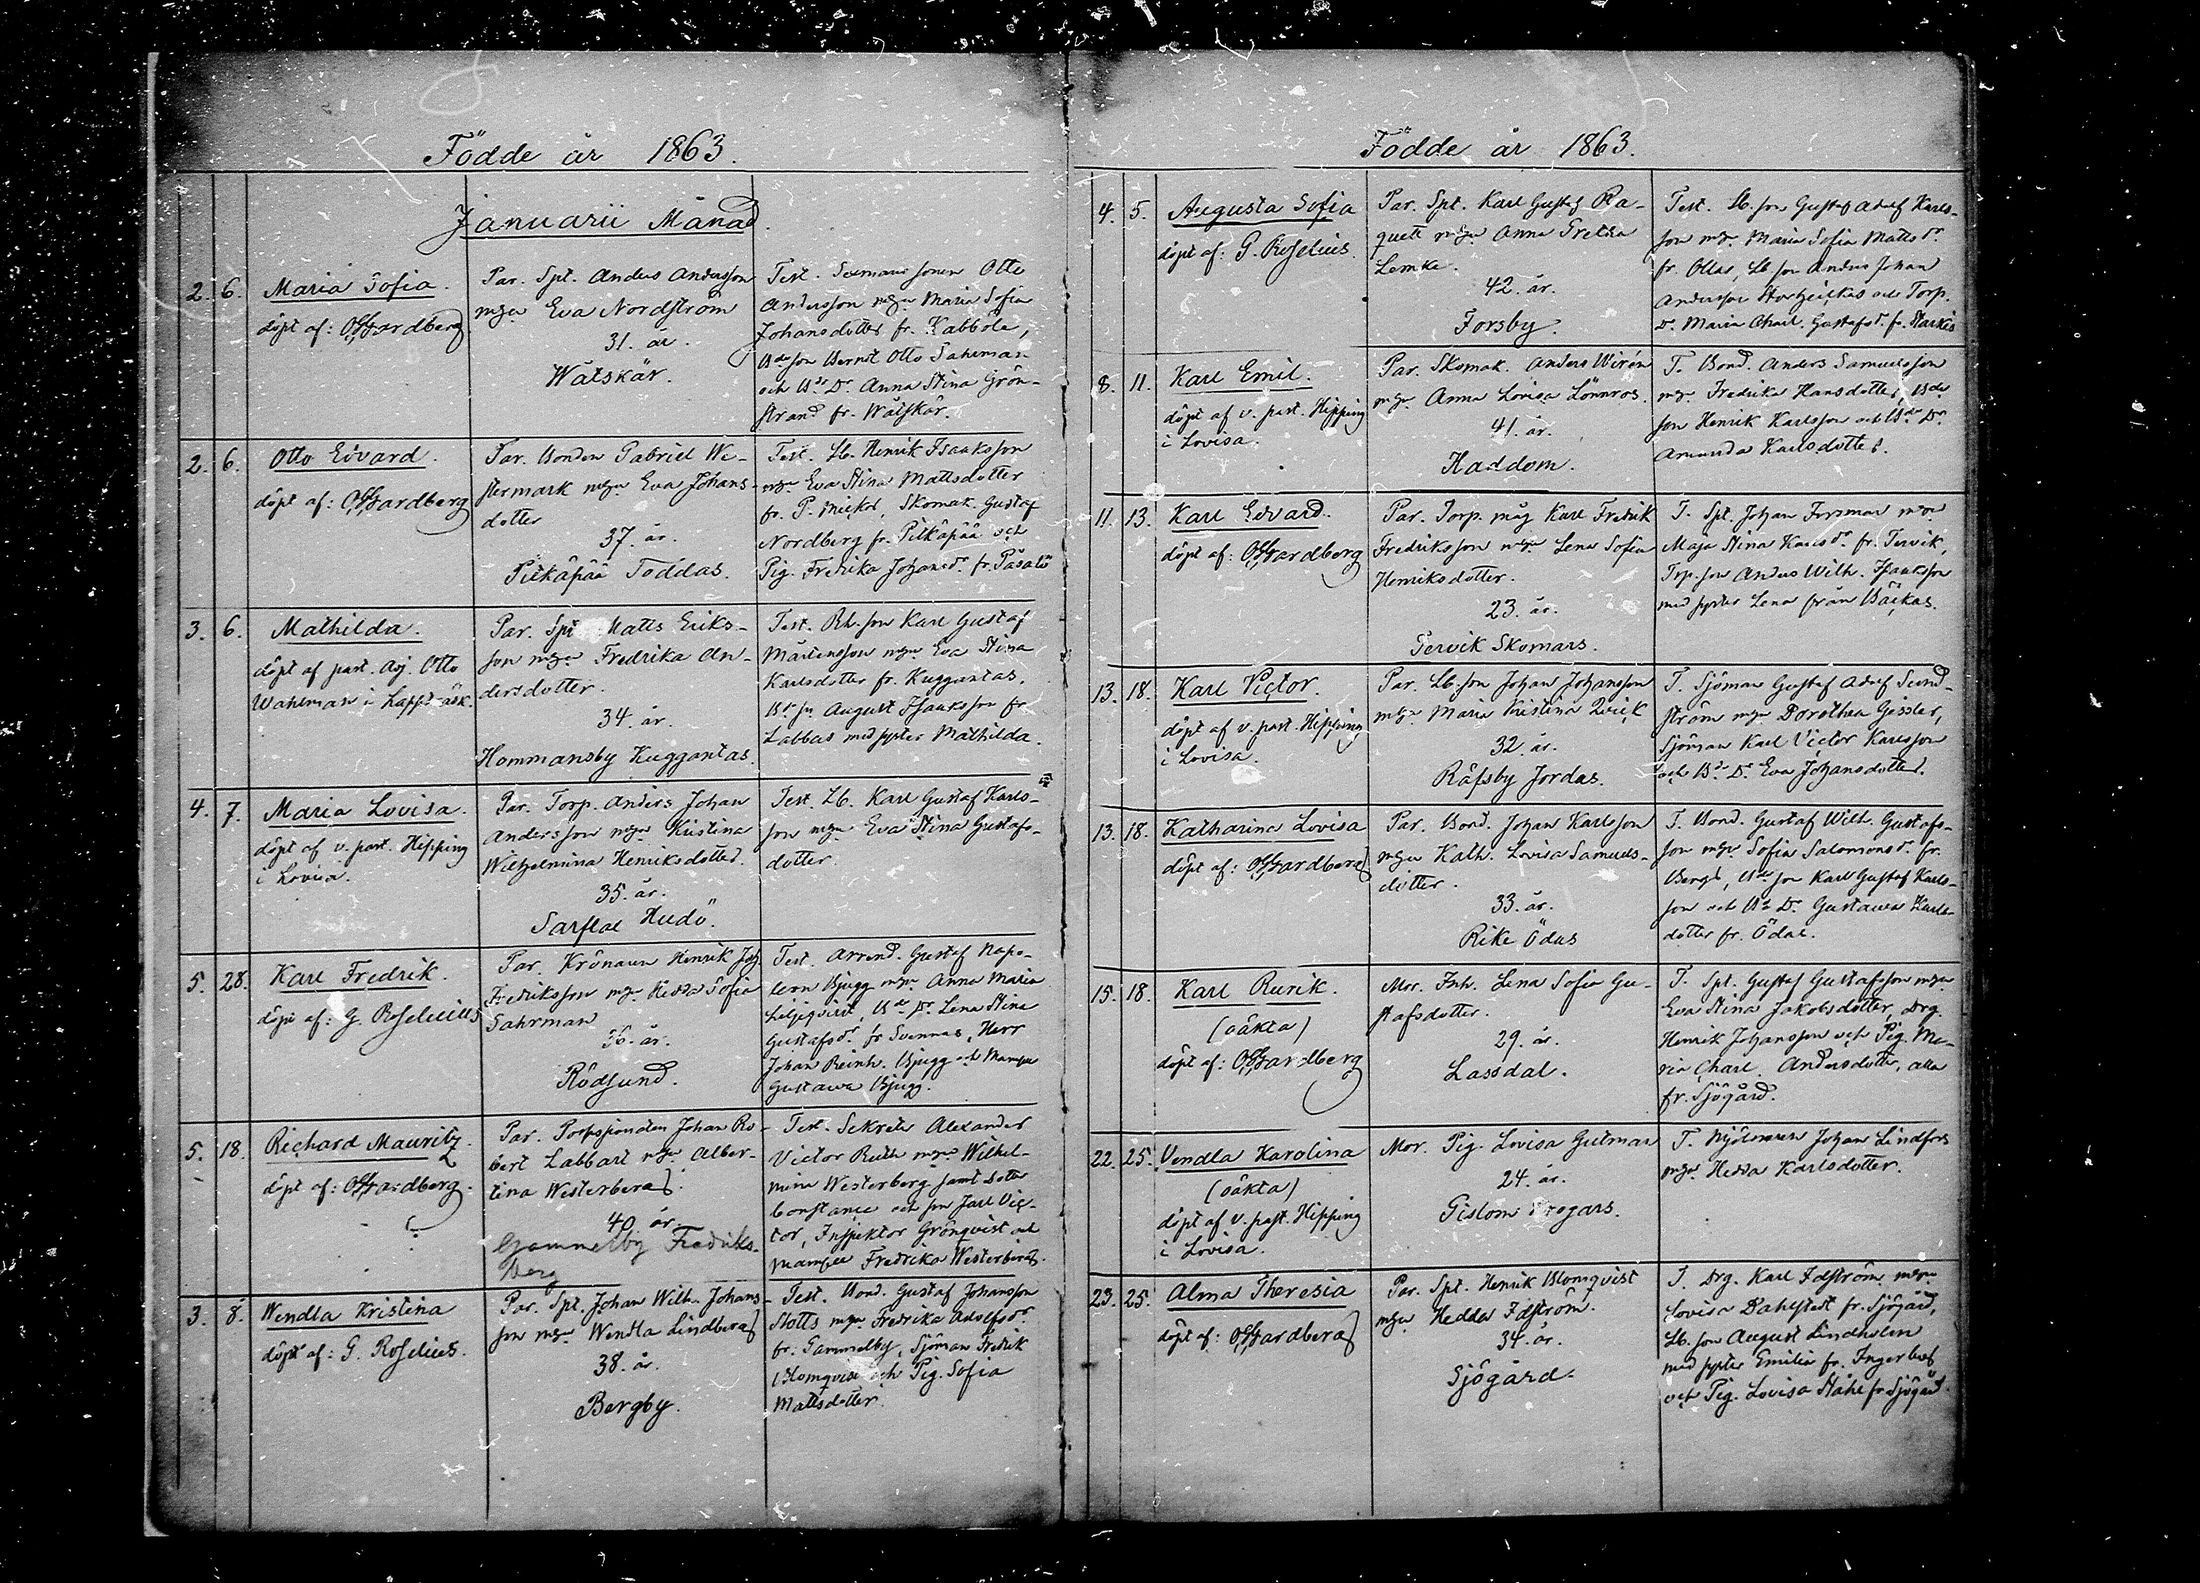 Födde år 1863.
Januarii Månad.
2. 6. Maria Sofia.
döpt af: OGardberg
Par. Spt. Anders Andersson
mgn Eva Nordström
31. år.
Wåtskär.
Test. Sexmans sonen Otto
Andersson mgn Maria Sofia
Johansdotter fr. Kabböle,
Bde son Bernt Otto Sahrman
och Bde Dr. Anna Stina Grön-
strand fr. Wåtskär.
2. 6. Otto Edvard.
döpt af: OGardberg
Par. Bonden Gabriel We-
stermark mgn Eva Johans-
dotter
37. år.
Pitkäpää Toddas.
Test. Lb. Henrik Isaksson
mgn Eva Stina Mattsdotter
fr. P. Mickos, Skomak. Gustaf
Nordberg fr. Pitkäpää och
Pig. Fredrika Johansdr. fr. Påsalö
3. 6. Mathilda.
döpt af past. Adj. Otto
Wahlman i Lappträsk.
Par. Spt Matts Eriks-
son mgn Fredrika An-
dersdotter.
34. år.
Hommansby Kuggantas.
Test. Rh. son Karl Gustaf
Mårtensson mgn Eva Stina
Karlsdotter fr. Kuggantas,
Bde sn August Isaksson fr
Labbas med syster Mathilda.
4. 7. Maria Lovisa.
döpt af v. past. Hipping
i Lovisa.
Par. Torp. Anders Johan
Andersson mgn Kristina
Wilhelmina Henriksdotter.
35. år.
Sarflax Hudö.
Test. Lb. Karl Gustaf Karls-
son mgn Eva Stina Gustafs-
dotter.
5. 28. Karl Fredrik.
döpt af: G. Roselius
Par. Krönaren Henrik Joh
Fredriksson mgn Hedda Sofia
Sahrman
36. år.
Rödsund.
Test. Arrend. Gustaf Napo-
leon Bjugg mgn Anna Maria
Liljeqvist, Bde Dr. Lena Stina
Gustafsdr. fr Svennas, Herr
Johan Reinh. Bjugg och Mamsell
Gustawa Bjugg.
5. 18. Richard Mauritz.
döpt af: OGardberg.
Par. Possessionaten Johan Ro-
bert Labbart mgn Alber-
tina Westerberg.
40. år.
Gammelby Fredriks-
berg
Test. Sekreter Alexander
Victor Ruth mgn Wilhel-
mina Westerberg samt dotter
Constance och son Jarl Vic-
tor, Inspektor Grönqvist och
Mamsell Fredrika Westerberg.
3. 8. Wendla Kristina
döpt af: G. Roselius.
Par. Spt. Johan Wilh. Johans-
son mgn Wendla Lindberg
38. år.
Bergby.
Test. Bond. Gustaf Johansson
Stotts mgn Fredrika Adolfsdr.
fr. Gammelby, Sjöman Fredrik
Blomqvist och Pig. Sofia
Mattsdotter.
Födde år 1863.
4. 5. Augusta Sofia
döpt af: G. Roselius.
Par. Spt. Karl Gustaf Ra-
quett mgn Anna Gretha
Lemke.
42. år.
Forsby.
Test. Lb. son Gustaf Adolf Karls-
son mgn Maria Sofia Mattsdr.
fr. Ollas, Lb son Anders Johan
Andersson och Torp.
Dr. Maria Charl. Gustafsdr. fr. Starkis
8. 11. Karl Emil.
döpt af v. past. Hipping
i Lovisa.
Par. Skomak. Anders Wirén
mgn Anna Lovisa Lönnros.
41. år.
Haddom.
T. Bond. Anders Samuelsson
mgn Fredrika Hansdotter, Bde
son Henrik Karlsson och Bde Dr.
Amanda Karlsdotter.
11. 13. Karl Edvard.
döpt af: OGardberg
Par. Torp. måg Karl Fredrik
Fredriksson mgn Lena Sofia
Henriksdotter.
23. år.
Tervik Skomars.
T. Spt. Johan Forsman mgn
Maja Stina Karlsdr. fr. Tervik,
Trp. son Anders Wilh. Isaksson
med syster Lena från Bäckas.
13. 18. Karl Victor.
döpt af v. past. Hipping
i Lovisa.
Par. Lb. son Johan Johansson
mgn Maria Kristina Qvick
32. år.
Räfsby Jordas.
T. Sjöman Gustaf Adolf Sund-
ström mgn Dorothea Gessler,
Sjöman Karl Victor Karlsson
och Bde Dr. Eva Johansdotter.
13. 18. Katharina Lovisa
döpt af: OGardberg
Par. Bond. Johan Karlsson
mgn Kath. Lovisa Samuels-
dotter.
33. år.
Rike Ödas
T. Bond. Gustaf Wilh. Gustafs-
son mgn Sofia Salomonsdr. fr.
Berg, Bde son Karl Gustaf Karls-
son och Bde Dr. Gustawa Karls-
dotter fr. Ödas.
15. 18. Karl Rurik.
(oäkta)
döpt af: OGardberg
Mor. Inh. Lena Sofia Gu-
stafsdotter.
29. år.
Lassdal.
T. Spt. Gustaf Gustafsson mgn
Eva Stina Jakobsdotter, Drg.
Henrik Johansson och Pig. Ma-
ria Charl. Andersdotter, alla
fr. Sjögård.
22. 25. Vendla Karolina
(oäkta)
döpt af v. past. Hipping
i Lovisa.
Mor. Pig. Lovisa Gutman
24. år.
Gislom Krogars.
T. Mjölnaren Johan Lindfors
mgn Hedda Karlsdotter.
23. 25. Alma Theresia
döpt af: OGardberg
Par. Spt. Henrik Blomqvist
mgn Hedda Idström.
34. år.
Sjögård.
T. Drg. Karl Idström mgn
Lovisa Dahlstedt fr. Sjögård,
Lb. son August Lindholm
med syster Emilia fr. Ingerby
och Pig. Lovisa Ståhl fr Sjögård.